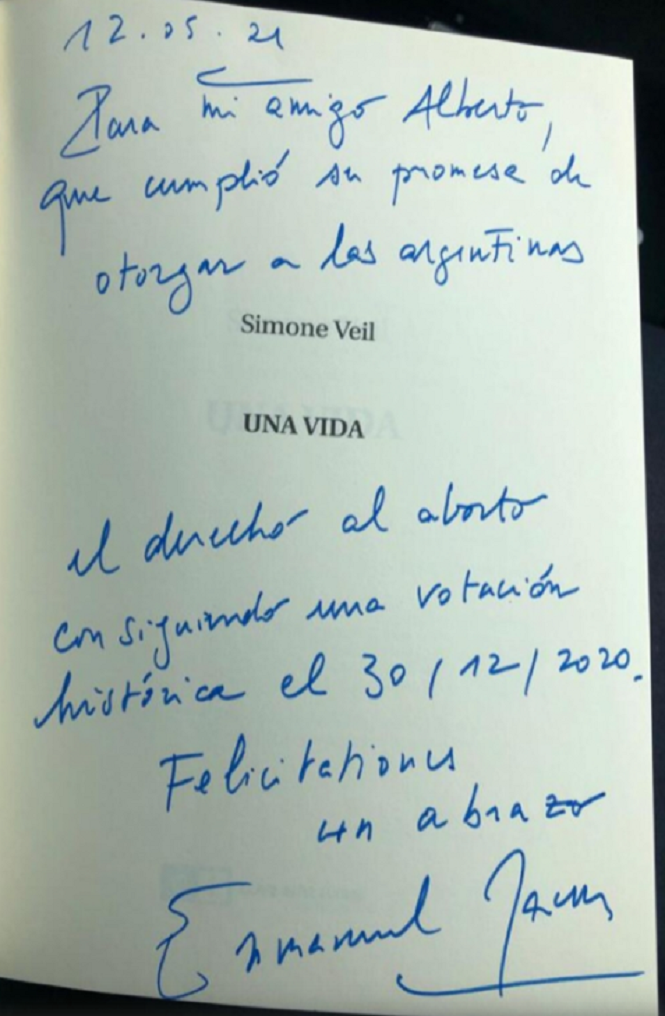 12.05.21
Para mi amigo Alberto,
que cumplió su promesa de
otorgar a las argentinas
Simone Veil
UNA VIDA
el derecho al aborto
consiguiendo una votación
histórica el 30/12/2020.
Felicitationes
un abrazo
Emmanuel Macron